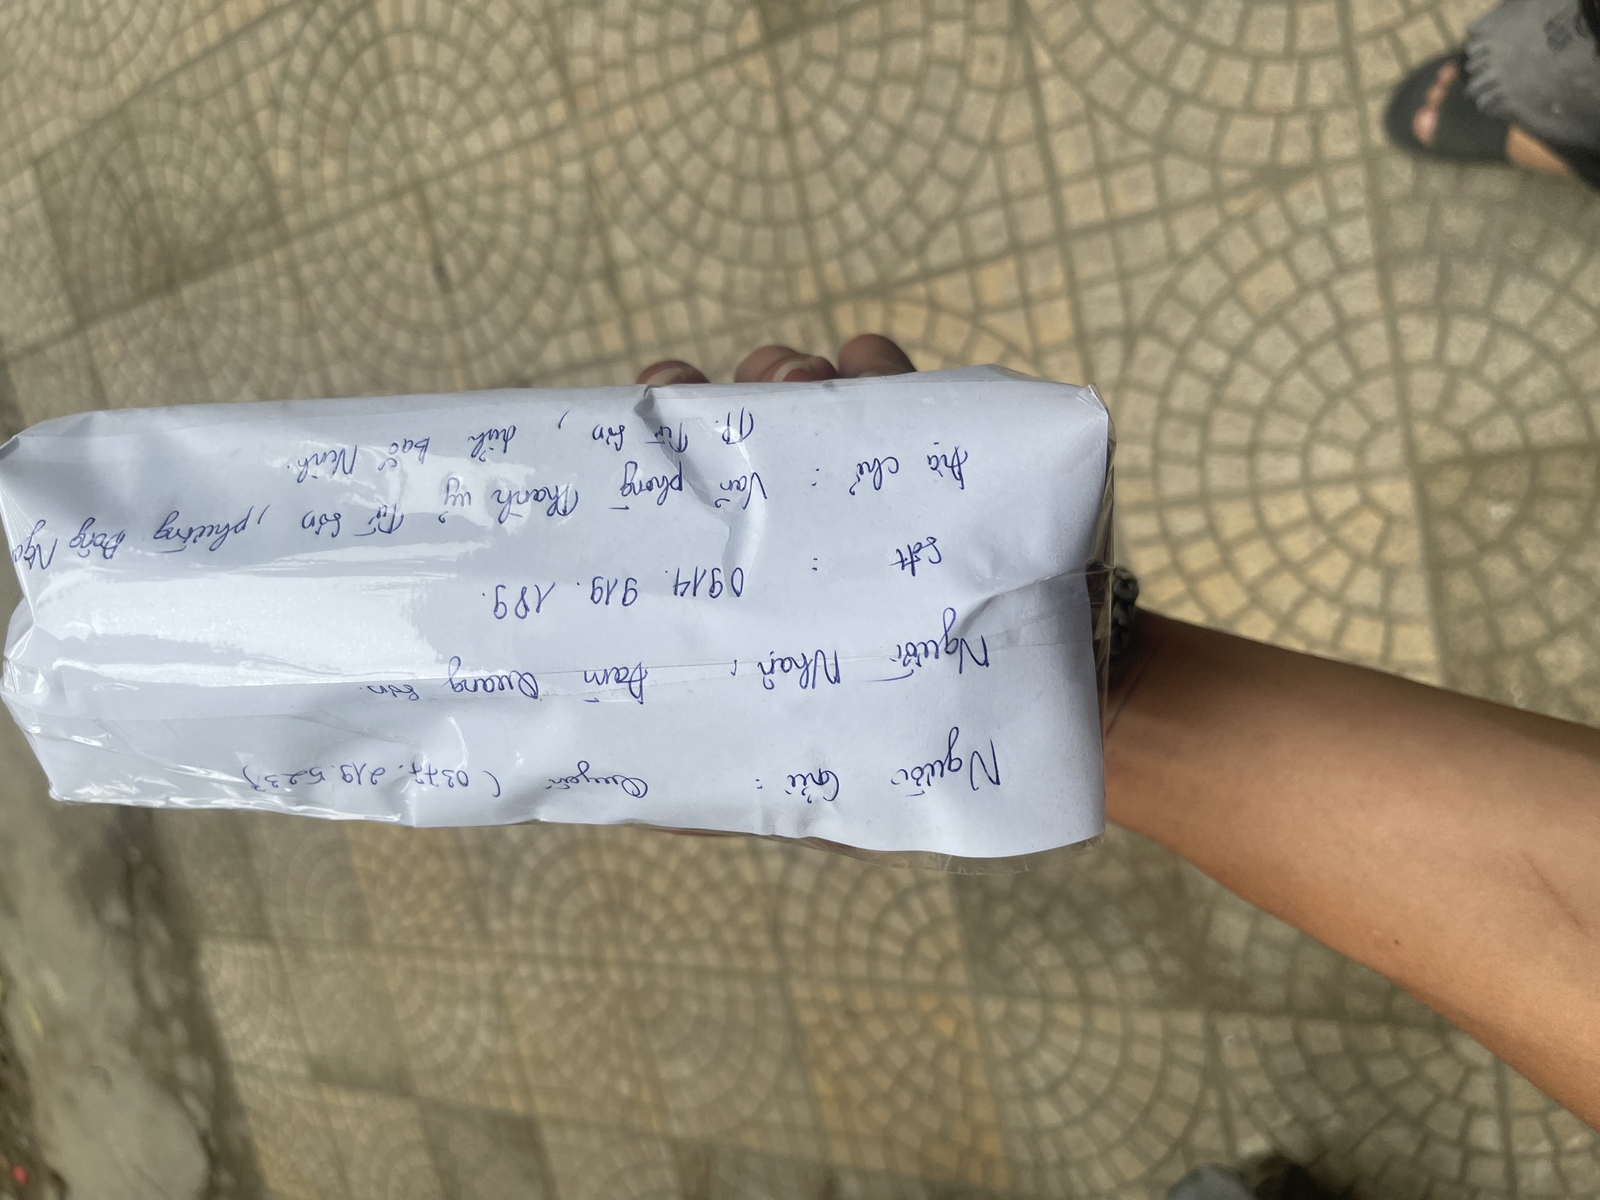 Người Gửi : Quyên (0377.219.523)
Người Nhận : Đàm Quang Sơn.
Sđt : 0914. 919. 189.
Địa chỉ : Văn phòng Thành uỷ Từ Sơn, phường Đông Ngà
TP. Từ Sơn, tỉnh Bắc Ninh.